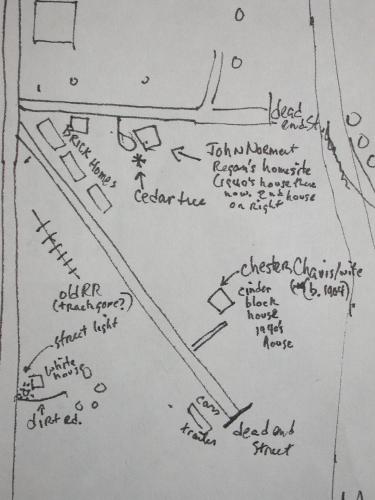 dead
end St.
BRICK Homes
John Norment
Regan's homesite
house there
now, 2nd house
on Right
Cedar tree
Chester Chavis/wife
(b. 1904)
cinder
block
house
1940's
house
old RR
(track gone?)
street light
White
house
dirt rd.
cam
trailer
dead end
Street